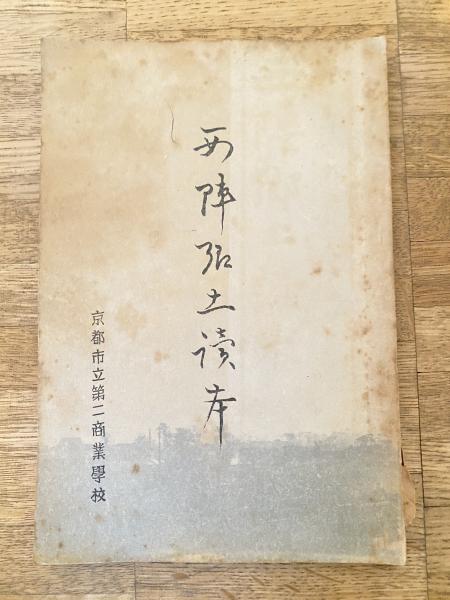 西陣郷土讀本
京都市立第二商業學校